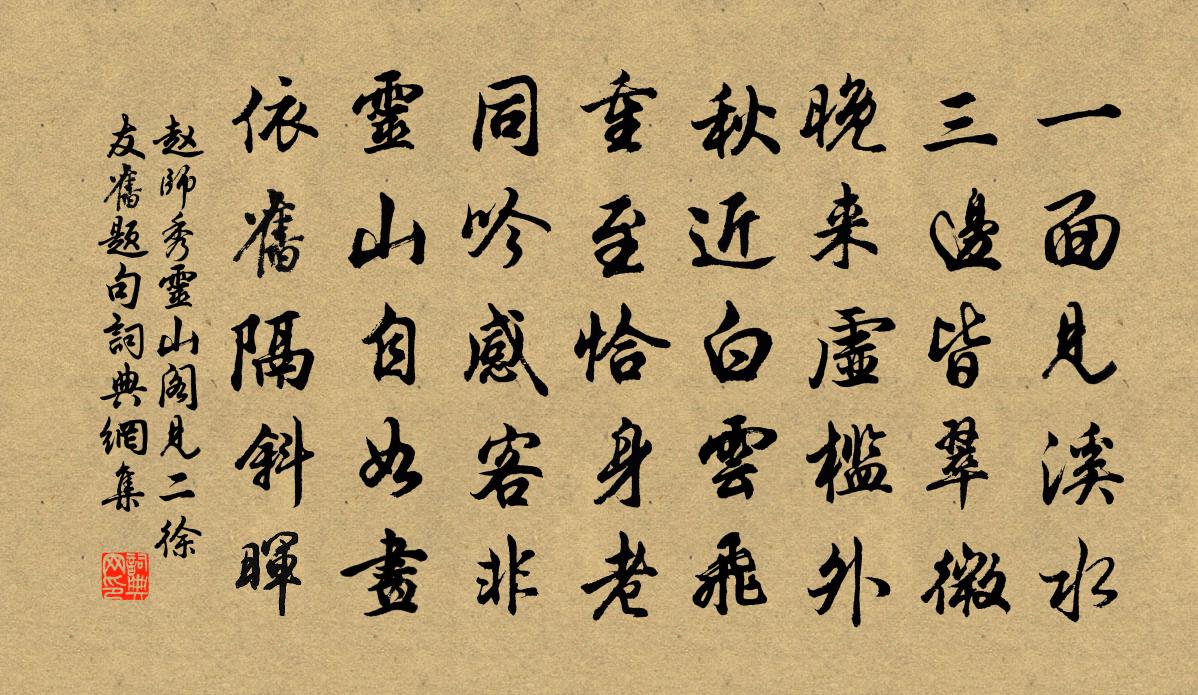 一面見溪水
三邊皆翠微
晚来虛檻外
秋近白雲飛
重至恰身老
同吟感客非
靈山自如畫
依舊隔斜暉
赵師秀靈山阁見二徐
友舊题句詞典網集
詞典网印